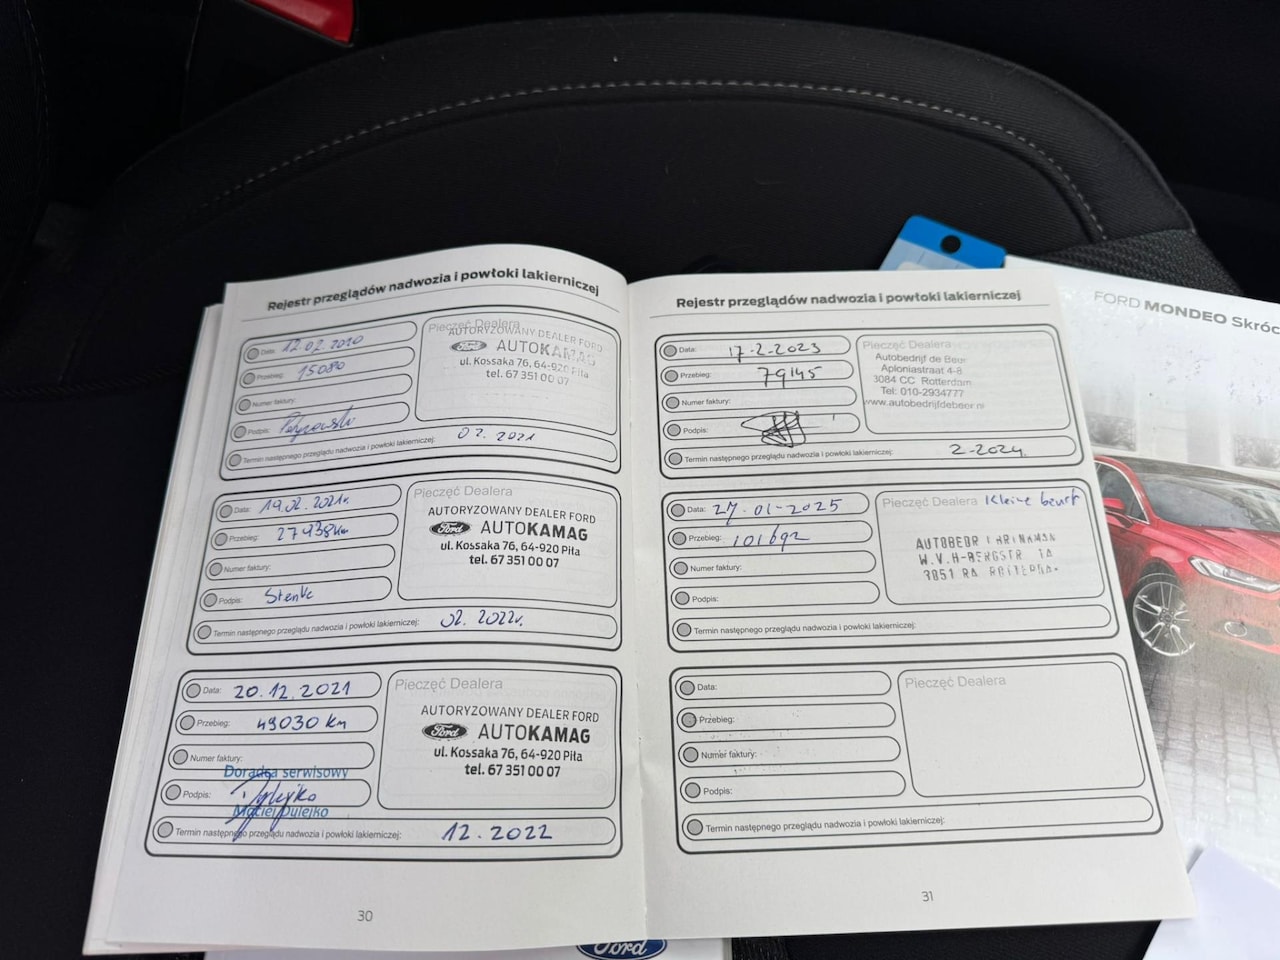 Rejestr przeglądów nadwozia i powłoki lakierniczej
Data: 12.02.2020
Przebieg: 15080
Numer faktury:
Podpis:
Pieczęć Dealera
AUTORYZOWANY DEALER FORD
Ford AUTOKAMAG
ul. Kossaka 76, 64-920 Piła
tel. 67 351 00 07
Termin następnego przeglądu nadwozia i powłoki lakierniczej: 02.2021
Data: 19.02.2021r.
Przebieg: 27938km
Numer faktury:
Podpis: Stenke
Pieczęć Dealera
AUTORYZOWANY DEALER FORD
Ford AUTOKAMAG
ul. Kossaka 76, 64-920 Piła
tel. 67 351 00 07
Termin następnego przeglądu nadwozia i powłoki lakierniczej: 02.2022r.
Data: 20.12.2021
Przebieg: 49030 km
Numer faktury:
Doradca serwisowy
Podpis:
Maciej Pulejko
Pieczęć Dealera
AUTORYZOWANY DEALER FORD
Ford AUTOKAMAG
ul. Kossaka 76, 64-920 Piła
tel. 67 351 00 07
Termin następnego przeglądu nadwozia i powłoki lakierniczej: 12.2022
30
Rejestr przeglądów nadwozia i powłoki lakierniczej
Data: 17-2-2023
Przebieg: 79145
Numer faktury:
Podpis:
Pieczęć Dealera
Autobedrijf de Beer
Aploniastraat 4-8
3084 CC Rotterdam
Tel: 010-2934777
www.autobedrijfdebeer.nl
Termin następnego przeglądu nadwozia i powłoki lakierniczej: 2-2024
Data: 27-01-2025
Przebieg: 101692
Numer faktury:
Podpis:
Pieczęć Dealera Kleine beurt
W.V.H-BERGSTR 1A
Termin następnego przeglądu nadwozia i powłoki lakierniczej:
Data:
Przebieg:
Numer faktury:
Podpis:
Pieczęć Dealera
Termin następnego przeglądu nadwozia i powłoki lakierniczej:
31
FORD MONDEO Skróc
Ford